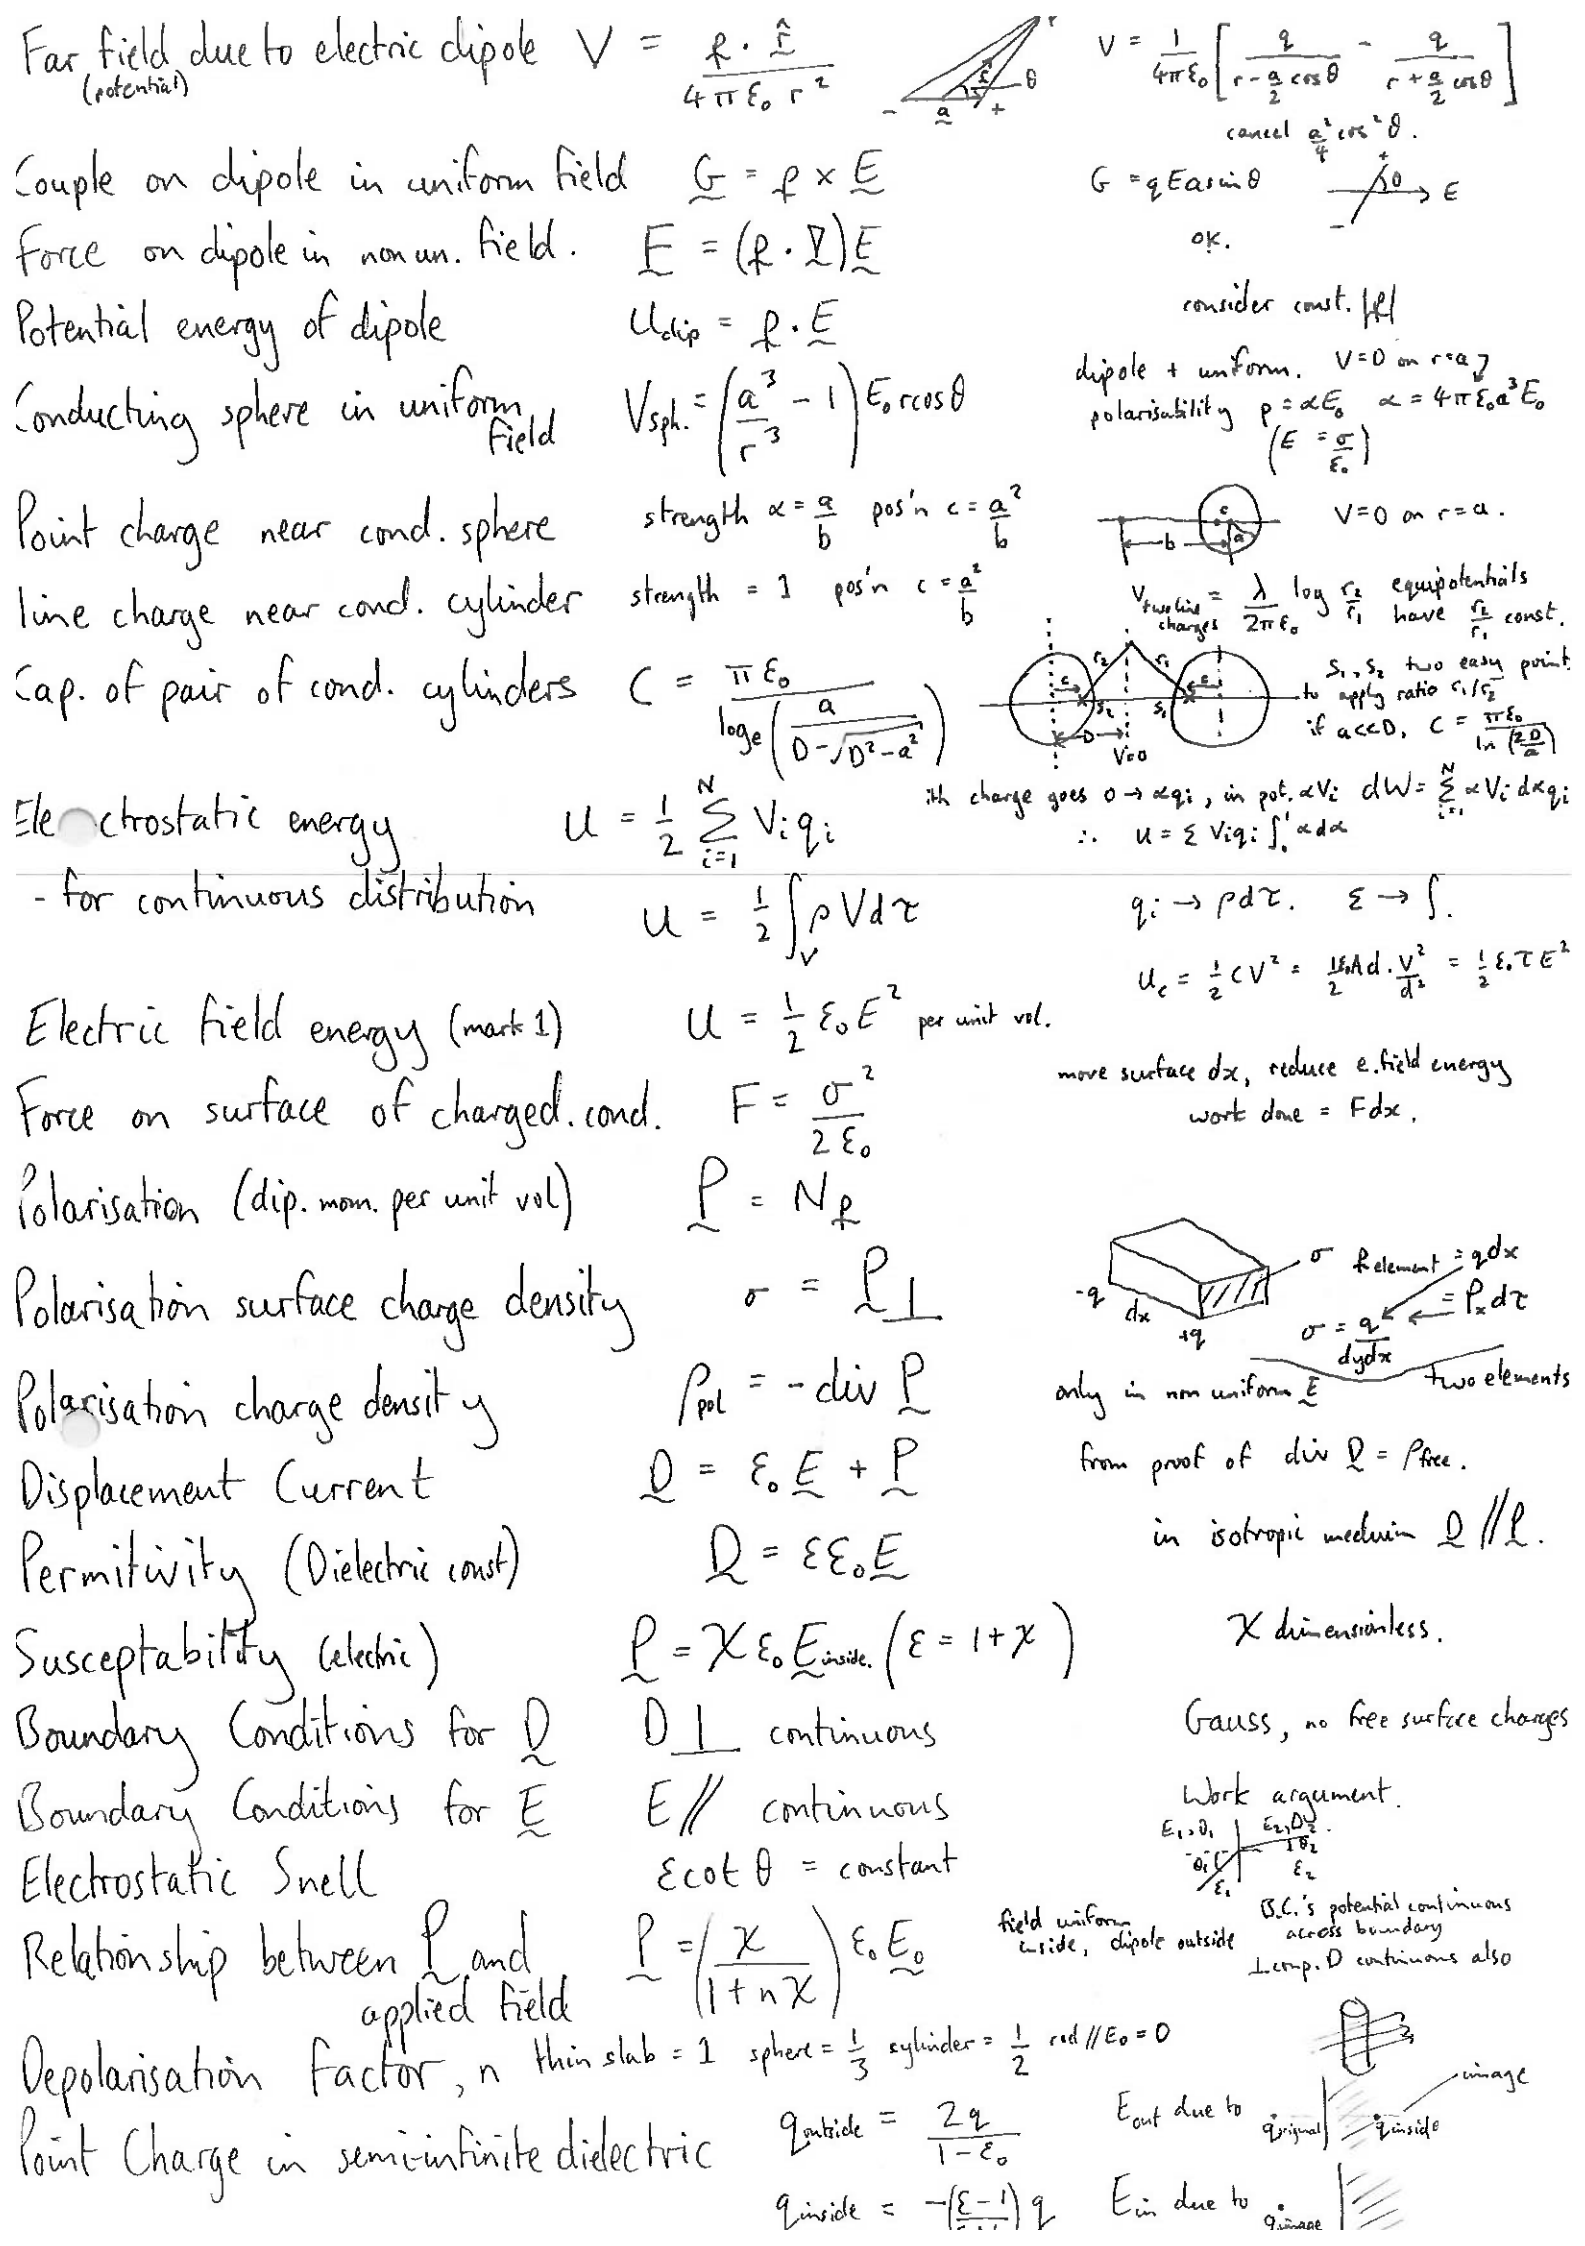 Far field due to electric dipole V = p · r̂ / 4πε₀ r²
(potential)
- a + θ
V = 1/4πε₀ [ q / r - a/2 cosθ - q / r + a/2 cosθ ]
cancel a²/4 cos²θ.
Couple on dipole in uniform field G = p × E
G = qEa sinθ
+ θ E -
Force on dipole in non un. field. F = (p · ∇)E
ok.
Potential energy of dipole U dip = p . E
consider const. |p|
Conducting sphere in uniform field Vsph. = (a³/r³ - 1) E₀ r cosθ
dipole + uniform. V=0 on r=a
polarisability p = αE₀ α = 4πε₀a³E₀
(E = σ/ε₀)
Point charge near cond. sphere strength α = a/b pos'n c = a²/b
c a b V=0 on r=a.
line charge near cond. cylinder strength = 1 pos'n c = a²/b
V two line charges = λ/2πε₀ log r₂/r₁ equipotentials
have r₂/r₁ const.
Cap. of pair of cond. cylinders C = πε₀ / logₑ( a / D-√D²-a² )
c r₂ r₁ c s₂ s₁ D V=0
S₁, S₂ two easy points
to apply ratio r₁/r₂
if a<<D, C = πε₀ / ln(2D/a)
Ele ctrostatic energy U = 1/2 Σ i=1 N Vi qi
ith charge goes 0 → αqi, in pot. αVi dW = Σ i=1 N αVi dαqi
∴ U = Σ Viqi ∫₀¹ αdα
- for continuous distribution U = 1/2 ∫v ρVdτ
qi → ρdτ. Σ → ∫.
Uc = 1/2 CV² = 1/2 ε₀Ad . V²/d² = 1/2 ε₀τE²
Electric field energy (mark 1) U = 1/2 ε₀E² per unit vol.
Force on surface of charged. cond. F = σ²/2ε₀
move surface dx, reduce e. field energy
work done = Fdx.
Polarisation (dip. mom. per unit vol) P = Np
Polarisation surface charge density σ = P⊥
-q dx +q σ p element = qdx
= Pₓdτ
σ = q/dydx
two elements
Polarisation charge density ρpol = -div P
only in non uniform E
Displacement Current D = ε₀E + P
from proof of div D = ρfree.
Permitivity (Dielectric const) D = εε₀E
in isotropic medium D // P.
Susceptability (electric) P = χε₀E inside. (ε = 1+χ)
χ dimensionless.
Boundary Conditions for D D⊥ continuous
Gauss, no free surface charges
Boundary Conditions for E E// continuous
Work argument.
E₁,D₁ E₂,D₂
θ₁ θ₂
ε₁ ε₂
Electrostatic Snell εcotθ = constant
Relationship between P and applied field P = (χ / 1+nχ) ε₀E₀
field uniform
inside, dipole outside
B.C.'s potential continuous
across boundary
⊥comp. D continuous also
Depolarisation Factor, n thin slab = 1 sphere = 1/3 cylinder = 1/2 rod // E₀ = 0
Point Charge in semi-infinite dielectric q outside = 2q / 1-ε₀
E out due to q original q inside image
q inside = -(ε-1) q
E in due to q image